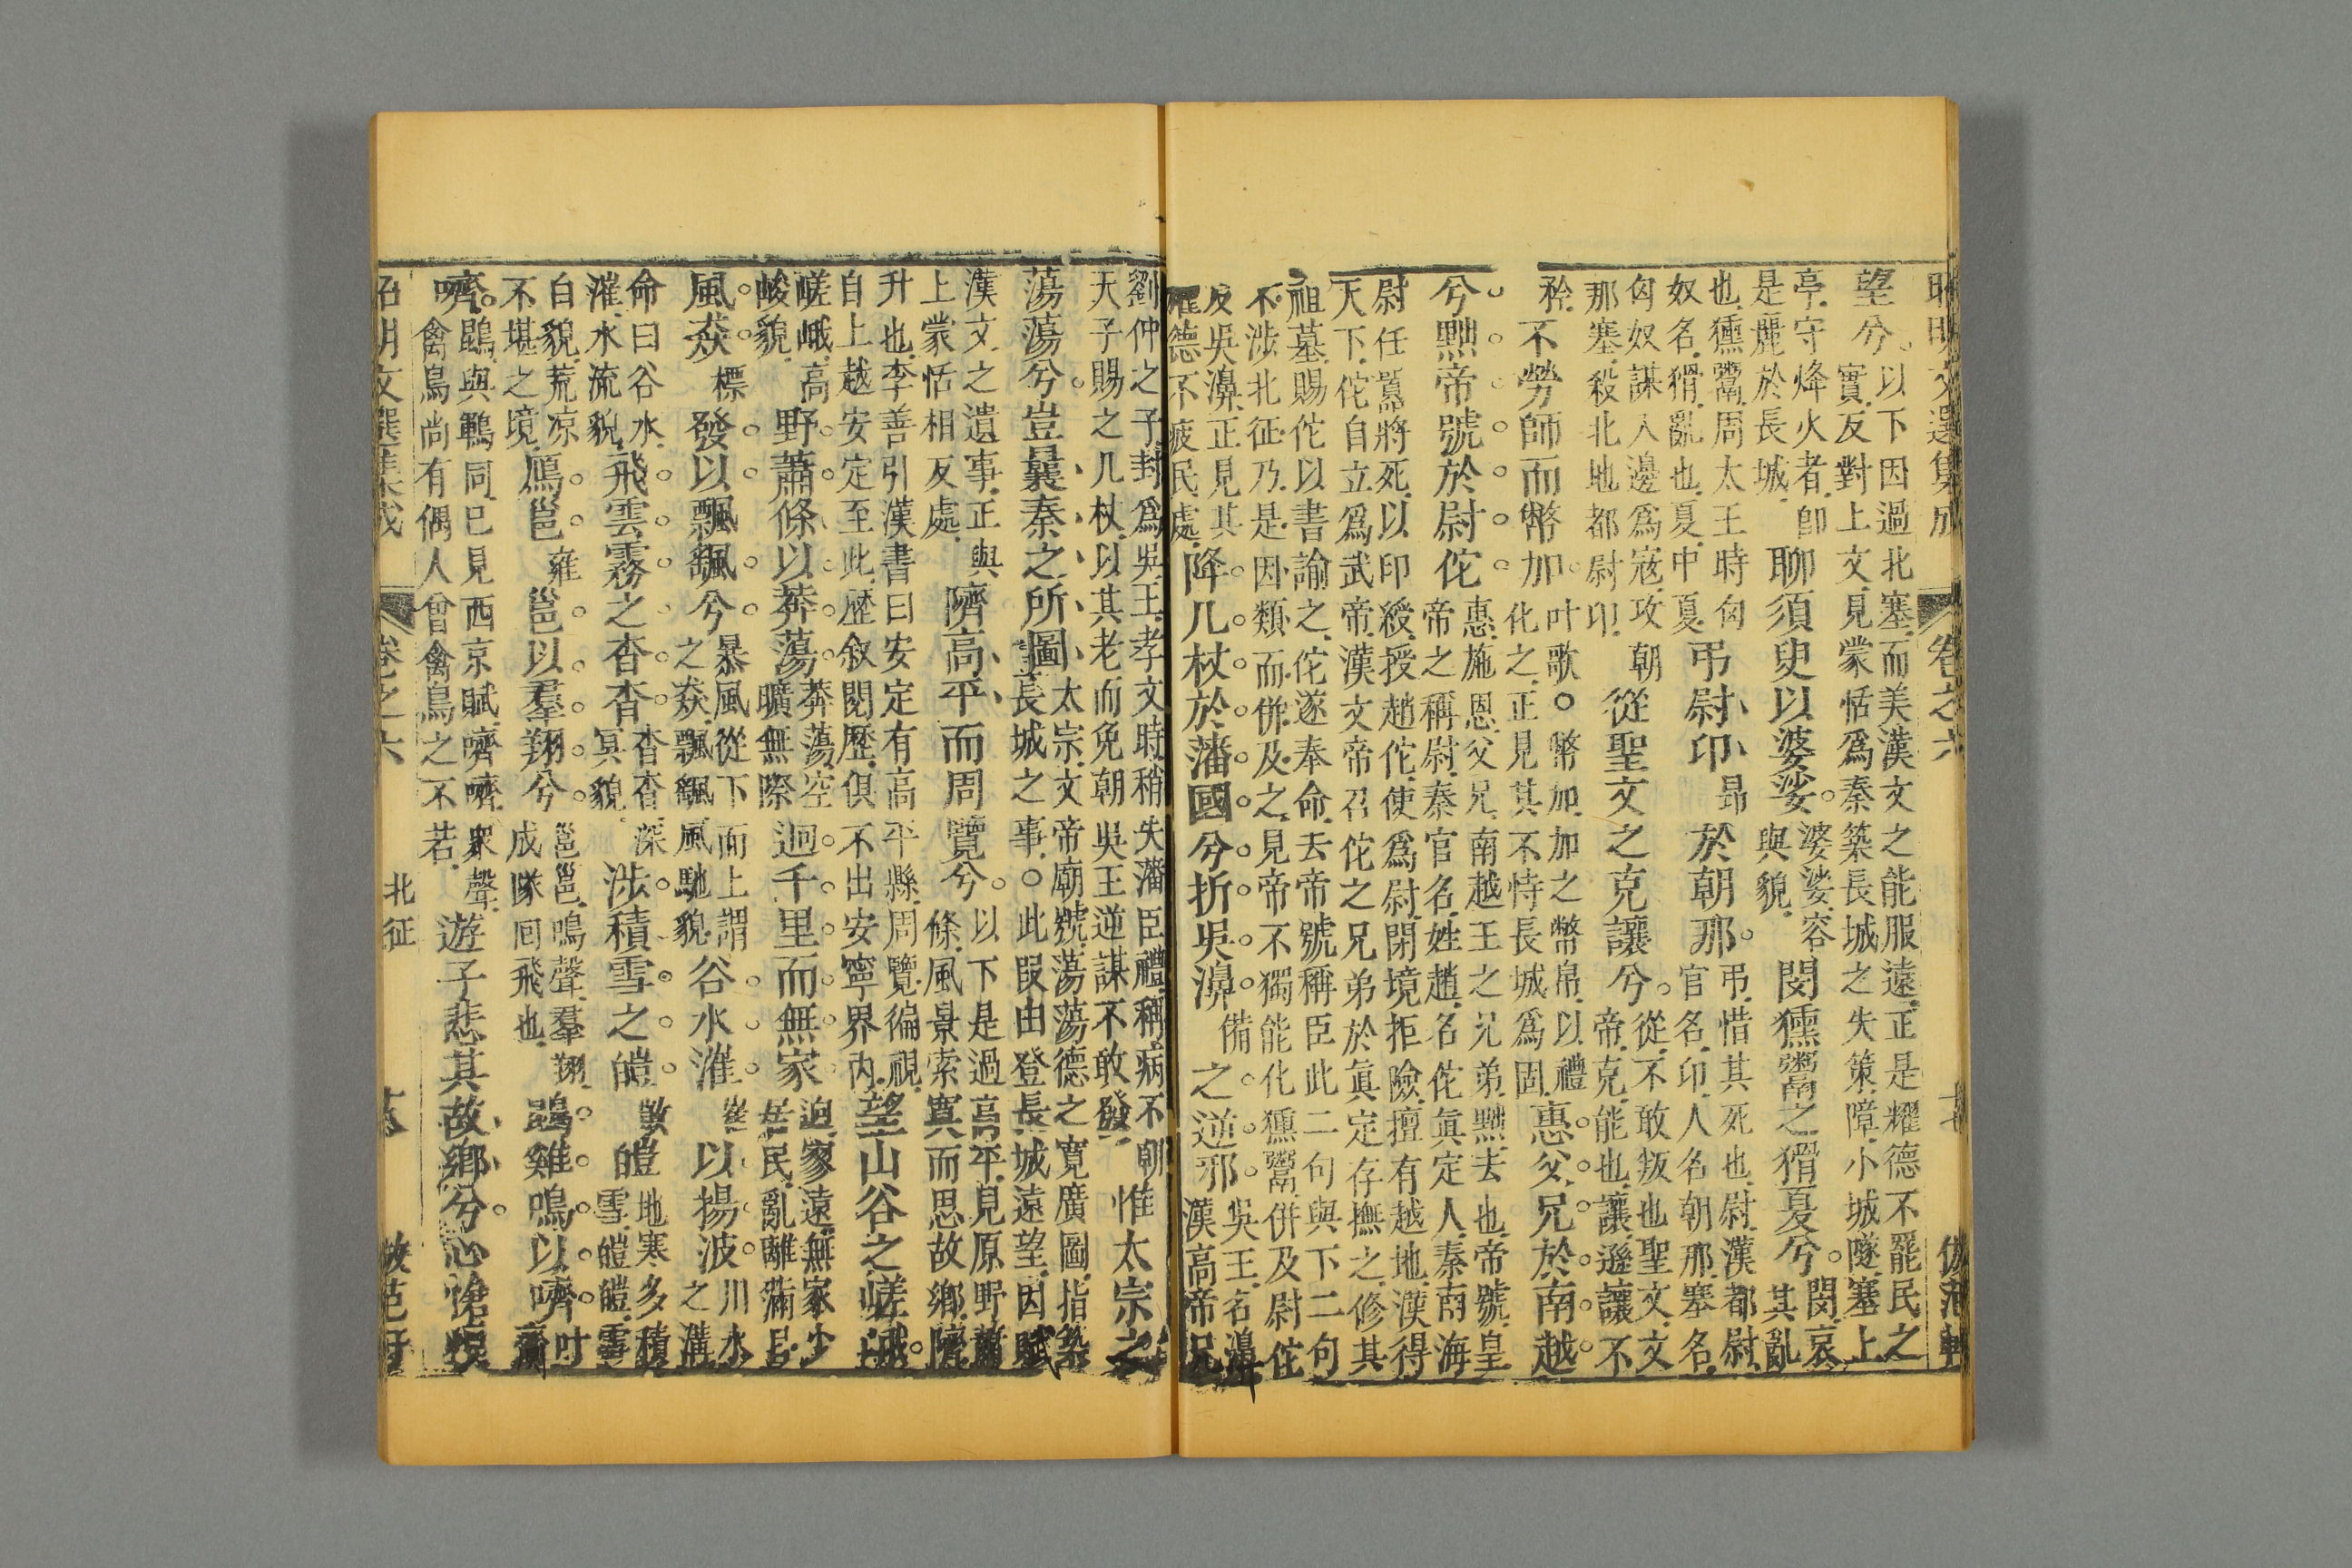 昭明文選集成 卷之六 十七 倣范軒
望兮
以下因過北塞而美漢文之能服遠正是耀德不罷民之
實反對上文見蒙恬爲秦築長城之失策障小城隧塞上
亭守烽火者卽
是麗於長城
聊須臾以婆娑
婆娑容
與貌
閔獯鬻之猾夏兮
閔哀
其亂
也獯鬻周太王時匈
奴名猾亂也夏中夏
弔尉卬昻於朝那
弔惜其死也尉漢都尉
官名卬人名朝那塞名
匈奴謀入邊爲寇攻朝
那塞殺北地都尉卬
從聖文之克讓兮
從不敢叛也聖文文
帝克能也讓遜讓不
矜
不勞師而幣加
叶歌○幣加加之幣帛以禮
化之正見其不恃長城爲固
惠父兄於南越
兮黜帝號於尉佗
惠施恩父兄南越王之兄弟黜去也帝號皇
帝之稱尉秦官名姓趙名佗眞定人秦南海
尉任囂將死以印綬授趙佗使爲尉閉境拒險擅有越地漢得
天下佗自立爲武帝漢文帝召佗之兄弟於眞定存撫之修其
祖墓賜佗以書諭之佗遂奉命去帝號稱臣此二句與下二句
不涉北征乃是因類而併及之見帝不獨能化獯鬻併及尉佗
反吳濞正見其
耀德不疲民處
降几杖於藩國兮折吳濞備之逆邪
吳王名濞
漢高帝兄
劉仲之子封爲吳王孝文時稍失藩臣禮稱病不朝
天子賜之几杖以其老而免朝吳王逆謀不敢發
惟太宗之
蕩蕩兮豈曩秦之所圖
太宗文帝廟號蕩蕩德之寬廣圖指築
長城之事○此叚由登長城遠望因賦
漢文之遺事正與
上蒙恬相反處
隮高平而周覽兮
以下是過高平見原野蕭
條風景索寞而思故鄉隮
升也李善引漢書曰安定有高平縣周覽徧視
自上越安定至此歷叙閱歷俱不出安寧界內
望山谷之嵯峨
嵯峨高
峻貌
野蕭條以莽蕩
莽蕩空
曠無際
迥千里而無家
迥家遠無家少
居民亂離滿目
風猋標發以飄颻兮
暴風從下而上謂
之猋飄颻風馳貌
谷水漼以揚波
川水
之溝
命曰谷水
漼水流貌
飛雲霧之杳杳
杳杳深
冥貌
涉積雪之皚敳皚
地寒多積
雪皚皚雪
白貌荒凉
不堪之境
鴈邕雍邕以羣翔兮
邕邕鳴聲羣翔
成隊囘飛也
鵾雞鳴以嚌
叶
齎
嚌
鵾與鶤同已見西京賦嚌嚌衆聲
禽鳥尚有偶人曾禽鳥之不若
遊子悲其故鄉兮心愴悢
昭明文選集成 卷之六 北征 倣范軒